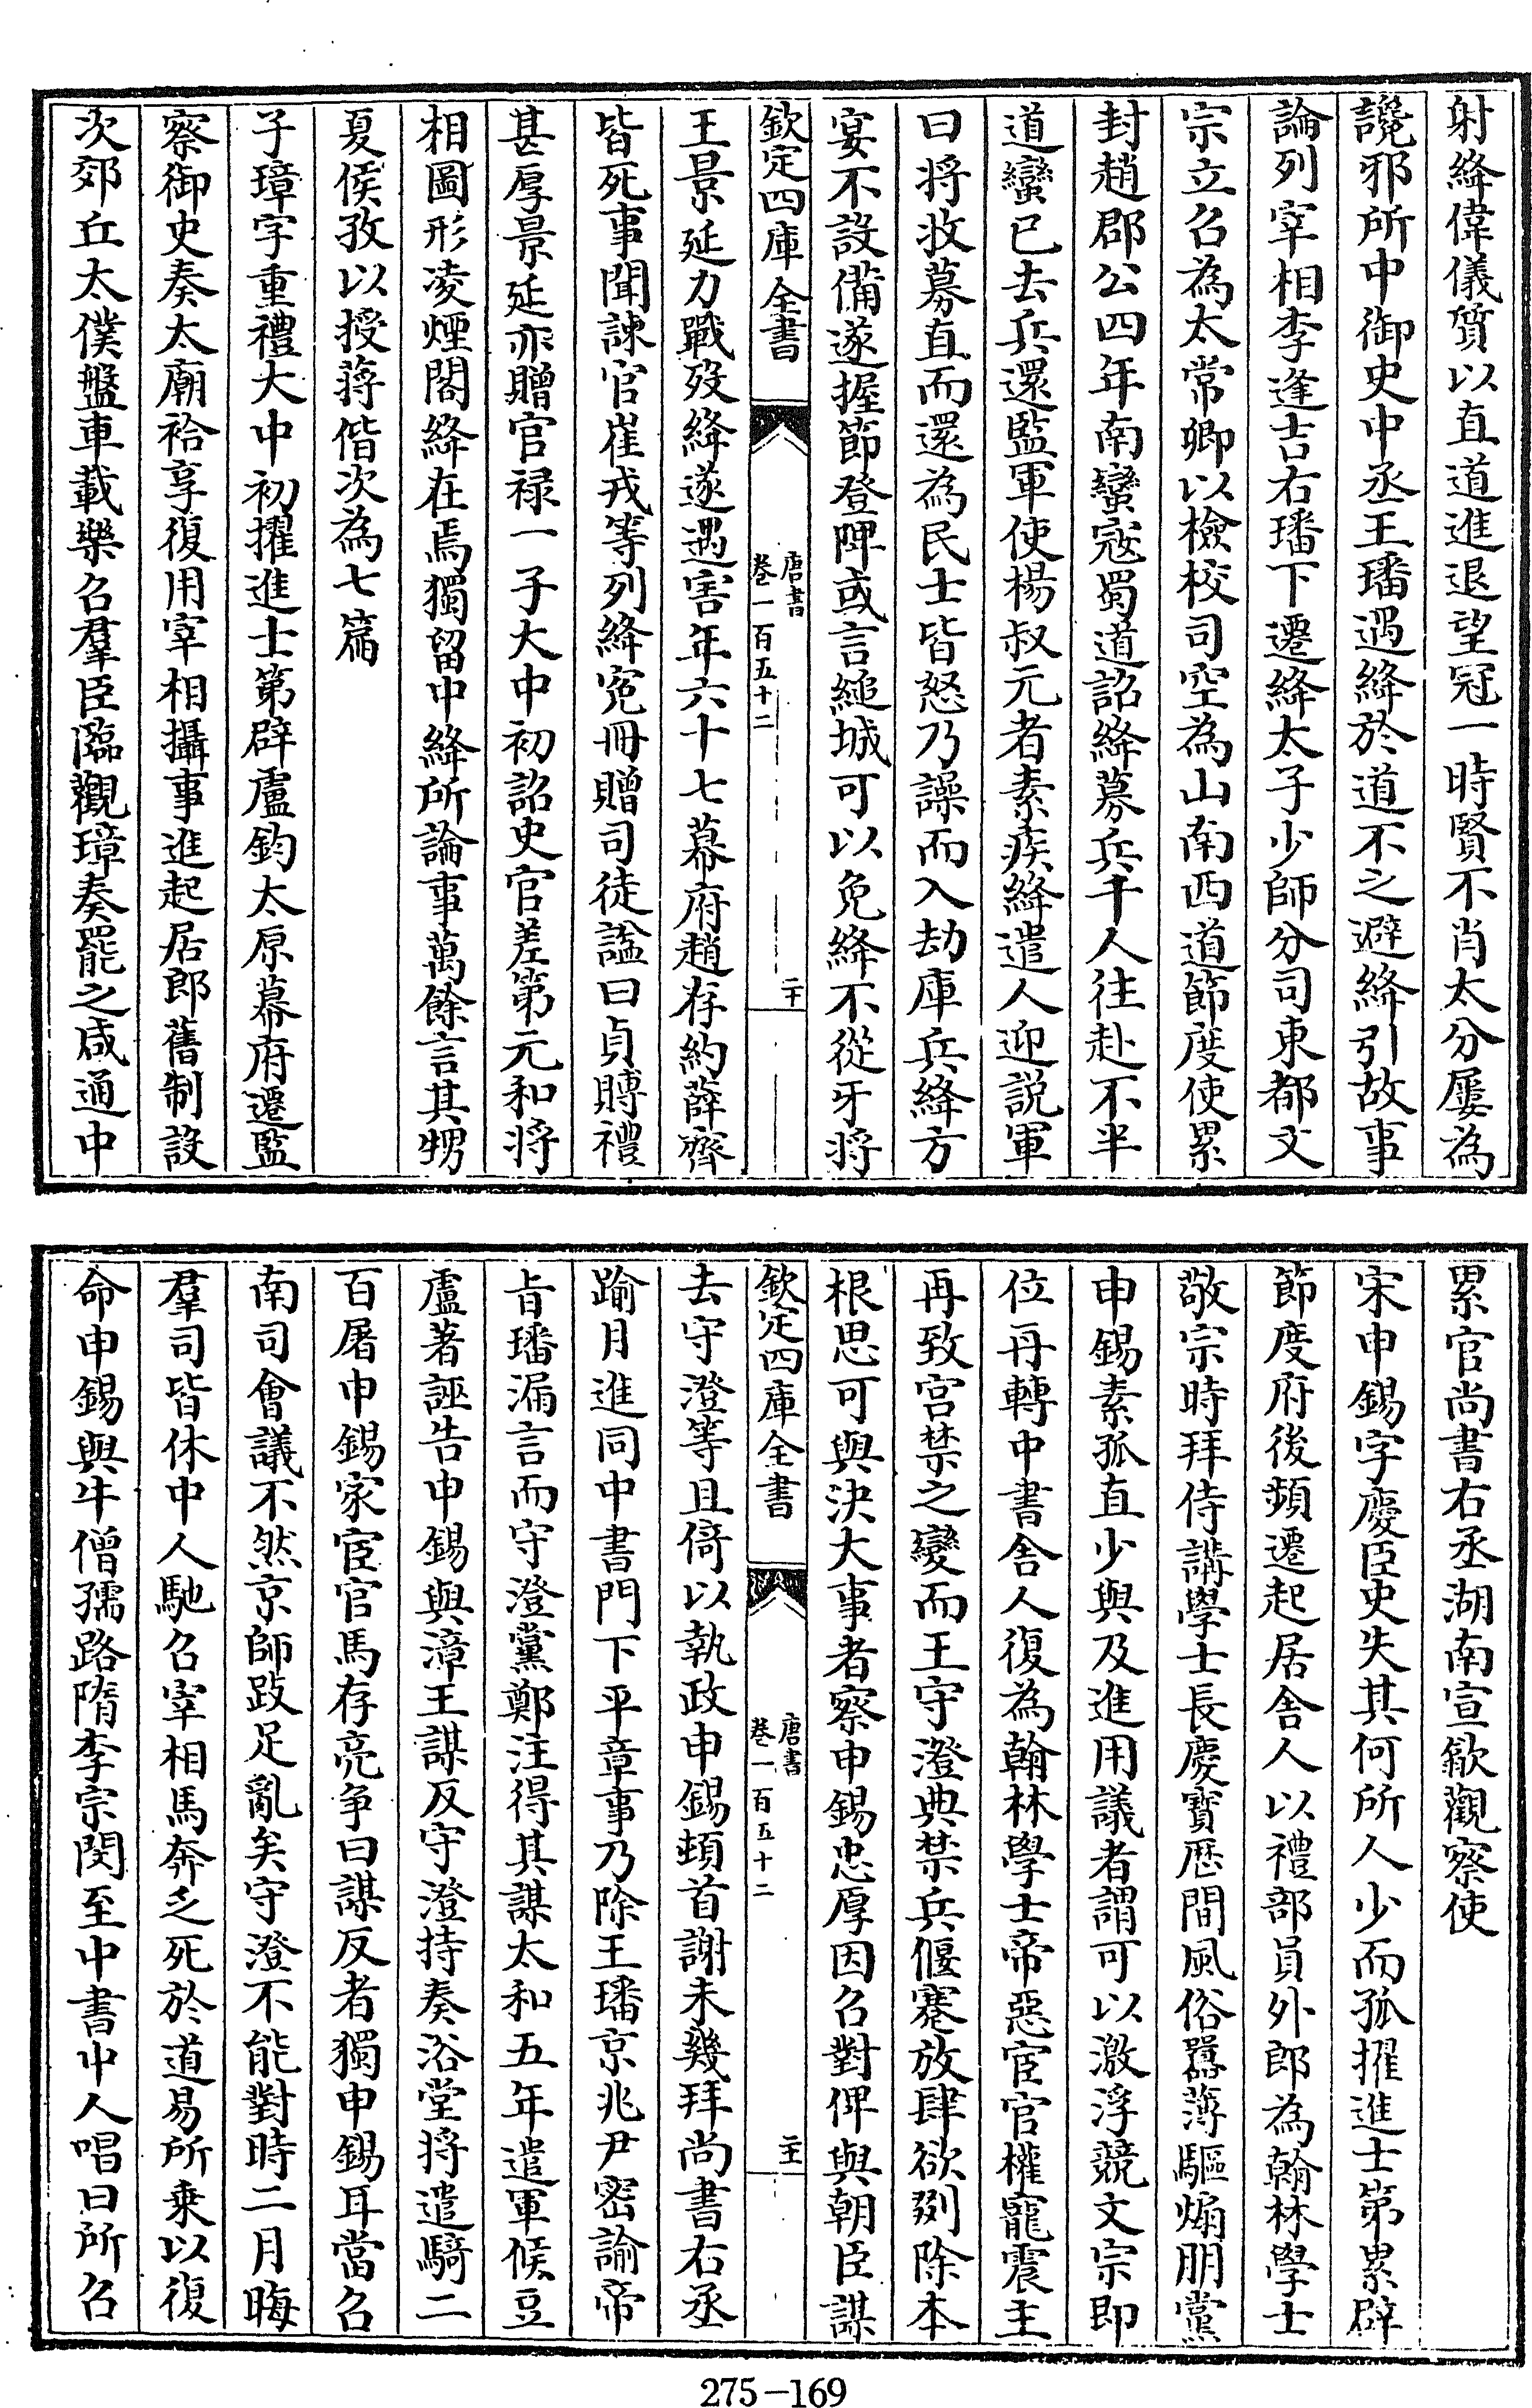 射絳偉儀質以直道進退望冠一時賢不肖太分屢為
讒邪所中御史中丞王璠遇絳於道不之避絳引故事
論列宰相李逢吉右璠下遷絳太子少師分司東都文
宗立召為太常卿以檢校司空為山南西道節度使累
封趙郡公四年南蠻寇蜀道詔絳募兵千人往赴不半
道蠻已去兵還監軍使楊叔元者素疾絳遣人迎説軍
曰將收募直而還為民士皆怒乃譟而入劫庫兵絳方
宴不設備遂握節登陴或言縋城可以免絳不從牙將
欽定四庫全書
唐書
卷一百五十二
二十
王景延力戰歿絳遂遇害年六十七幕府趙存約薛齊
皆死事聞諫官崔戎等列絳寃冊贈司徒諡曰貞賻禮
甚厚景延亦贈官祿一子大中初詔史官差第元和將
相圖形凌煙閣絳在焉獨留中絳所論事萬餘言其甥
夏侯孜以授蔣偕次為七篇
子璋字重禮大中初擢進士第辟盧鈞太原幕府遷監
察御史奏太廟祫享復用宰相攝事進起居郎舊制設
次郊丘太僕盤車載樂召羣臣臨觀璋奏罷之咸通中
累官尚書右丞湖南宣歙觀察使
宋申錫字慶臣史失其何所人少而孤擢進士第累辟
節度府後頻遷起居舍人以禮部員外郎為翰林學士
敬宗時拜侍講學士長慶寶厯間風俗囂薄驅煽朋黨
申錫素孤直少與及進用議者謂可以激浮競文宗即
位再轉中書舍人復為翰林學士帝惡宦官權寵震主
再致宫禁之變而王守澄典禁兵偃蹇放肆欲剟除本
根思可與決大事者察申錫忠厚因召對俾與朝臣謀
欽定四庫全書
唐書
卷一百五十二
二十一
去守澄等且倚以執政申錫頓首謝未幾拜尚書右丞
踰月進同中書門下平章事乃除王璠京兆尹密諭帝
旨璠漏言而守澄黨鄭注得其謀太和五年遣軍候豆
盧著誣告申錫與漳王謀反守澄持奏浴堂將遣騎二
百屠申錫家宦官馬存亮争曰謀反者獨申錫耳當召
南司會議不然京師跂足亂矣守澄不能對時二月晦
羣司皆休中人馳召宰相馬奔乏死於道易所乘以復
命申錫與牛僧孺路隋李宗閔至中書中人唱曰所召
275-169